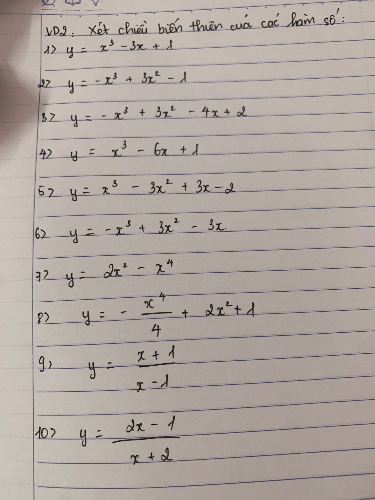 VD2: Xét chiều biến thiên của các hàm số:
1) y = x³ - 3x + 1
2) y = -x³ + 3x² - 1
3) y = -x³ + 3x² - 4x + 2
4) y = x³ - 6x + 1
5) y = x³ - 3x² + 3x - 2
6) y = -x³ + 3x² - 3x
7) y = 2x² - x⁴
8) y = - x⁴/4 + 2x² + 1
9) y = (x + 1)/(x - 1)
10) y = (2x - 1)/(x + 2)